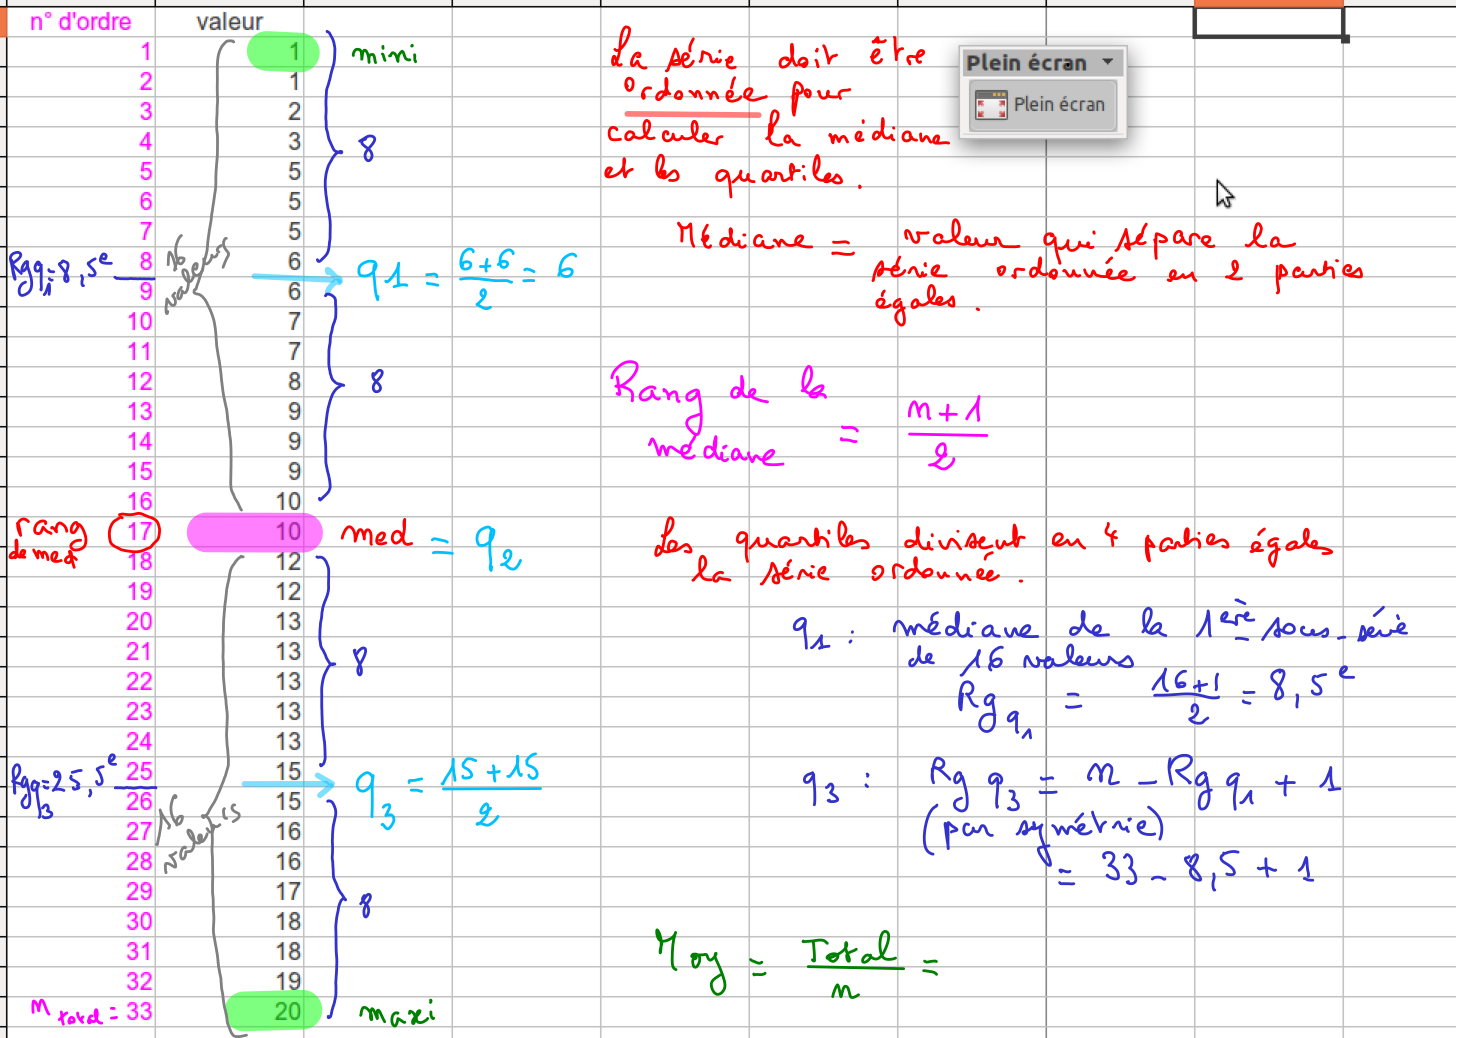 n° d'ordre valeur
1 1 mini
2 1
3 2
4 3 8
5 5
6 5
7 5
8 6
Rg q1 = 8,5e 16 valeurs q1 = 6+6/2 = 6
9 6
10 7
11 7
12 8 8
13 9
14 9
15 9
16 10
rang de med 17 10 med = q2
18 12
19 12
20 13
21 13 8
22 13
23 13
24 13
25 15
Rg q3 = 25,5e q3 = 15+15/2
26 15
16 valeurs
27 16
28 16
29 17 8
30 18
31 18
32 19
n total = 33 20 maxi
La série doit être
ordonnée pour
calculer la médiane
et les quartiles.
Plein écran
Plein écran
Médiane = valeur qui sépare la
série ordonnée en 2 parties
égales.
Rang de la
médiane = n+1/2
Les quartiles divisent en 4 parties égales
la série ordonnée.
q1 : médiane de la 1ère sous-série
de 16 valeurs
Rg q1 = 16+1/2 = 8,5e
q3 : Rg q3 = n - Rg q1 + 1
(par symétrie)
= 33 - 8,5 + 1
Moy = Total/n =